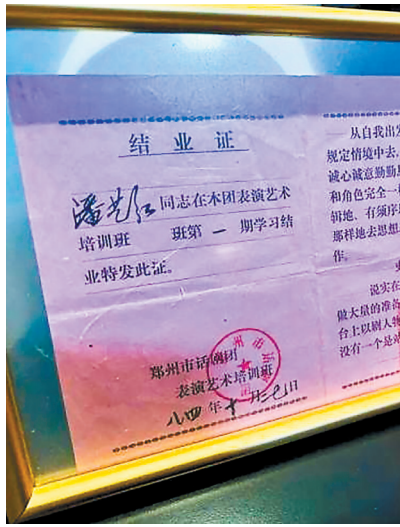 结业证
潘艺红同志在本团表演艺术
培训班 班第一期学习结
业特发此证。
郑州市话剧团
表演艺术培训班
八四年十月二七日
从自我出发
规定情境中去,
诚心诚意勤勤恳
和角色完全一
辑地、有须序
那样地去思想
作。
说实在
做大量的准备
台上以剧人物
没有一个是